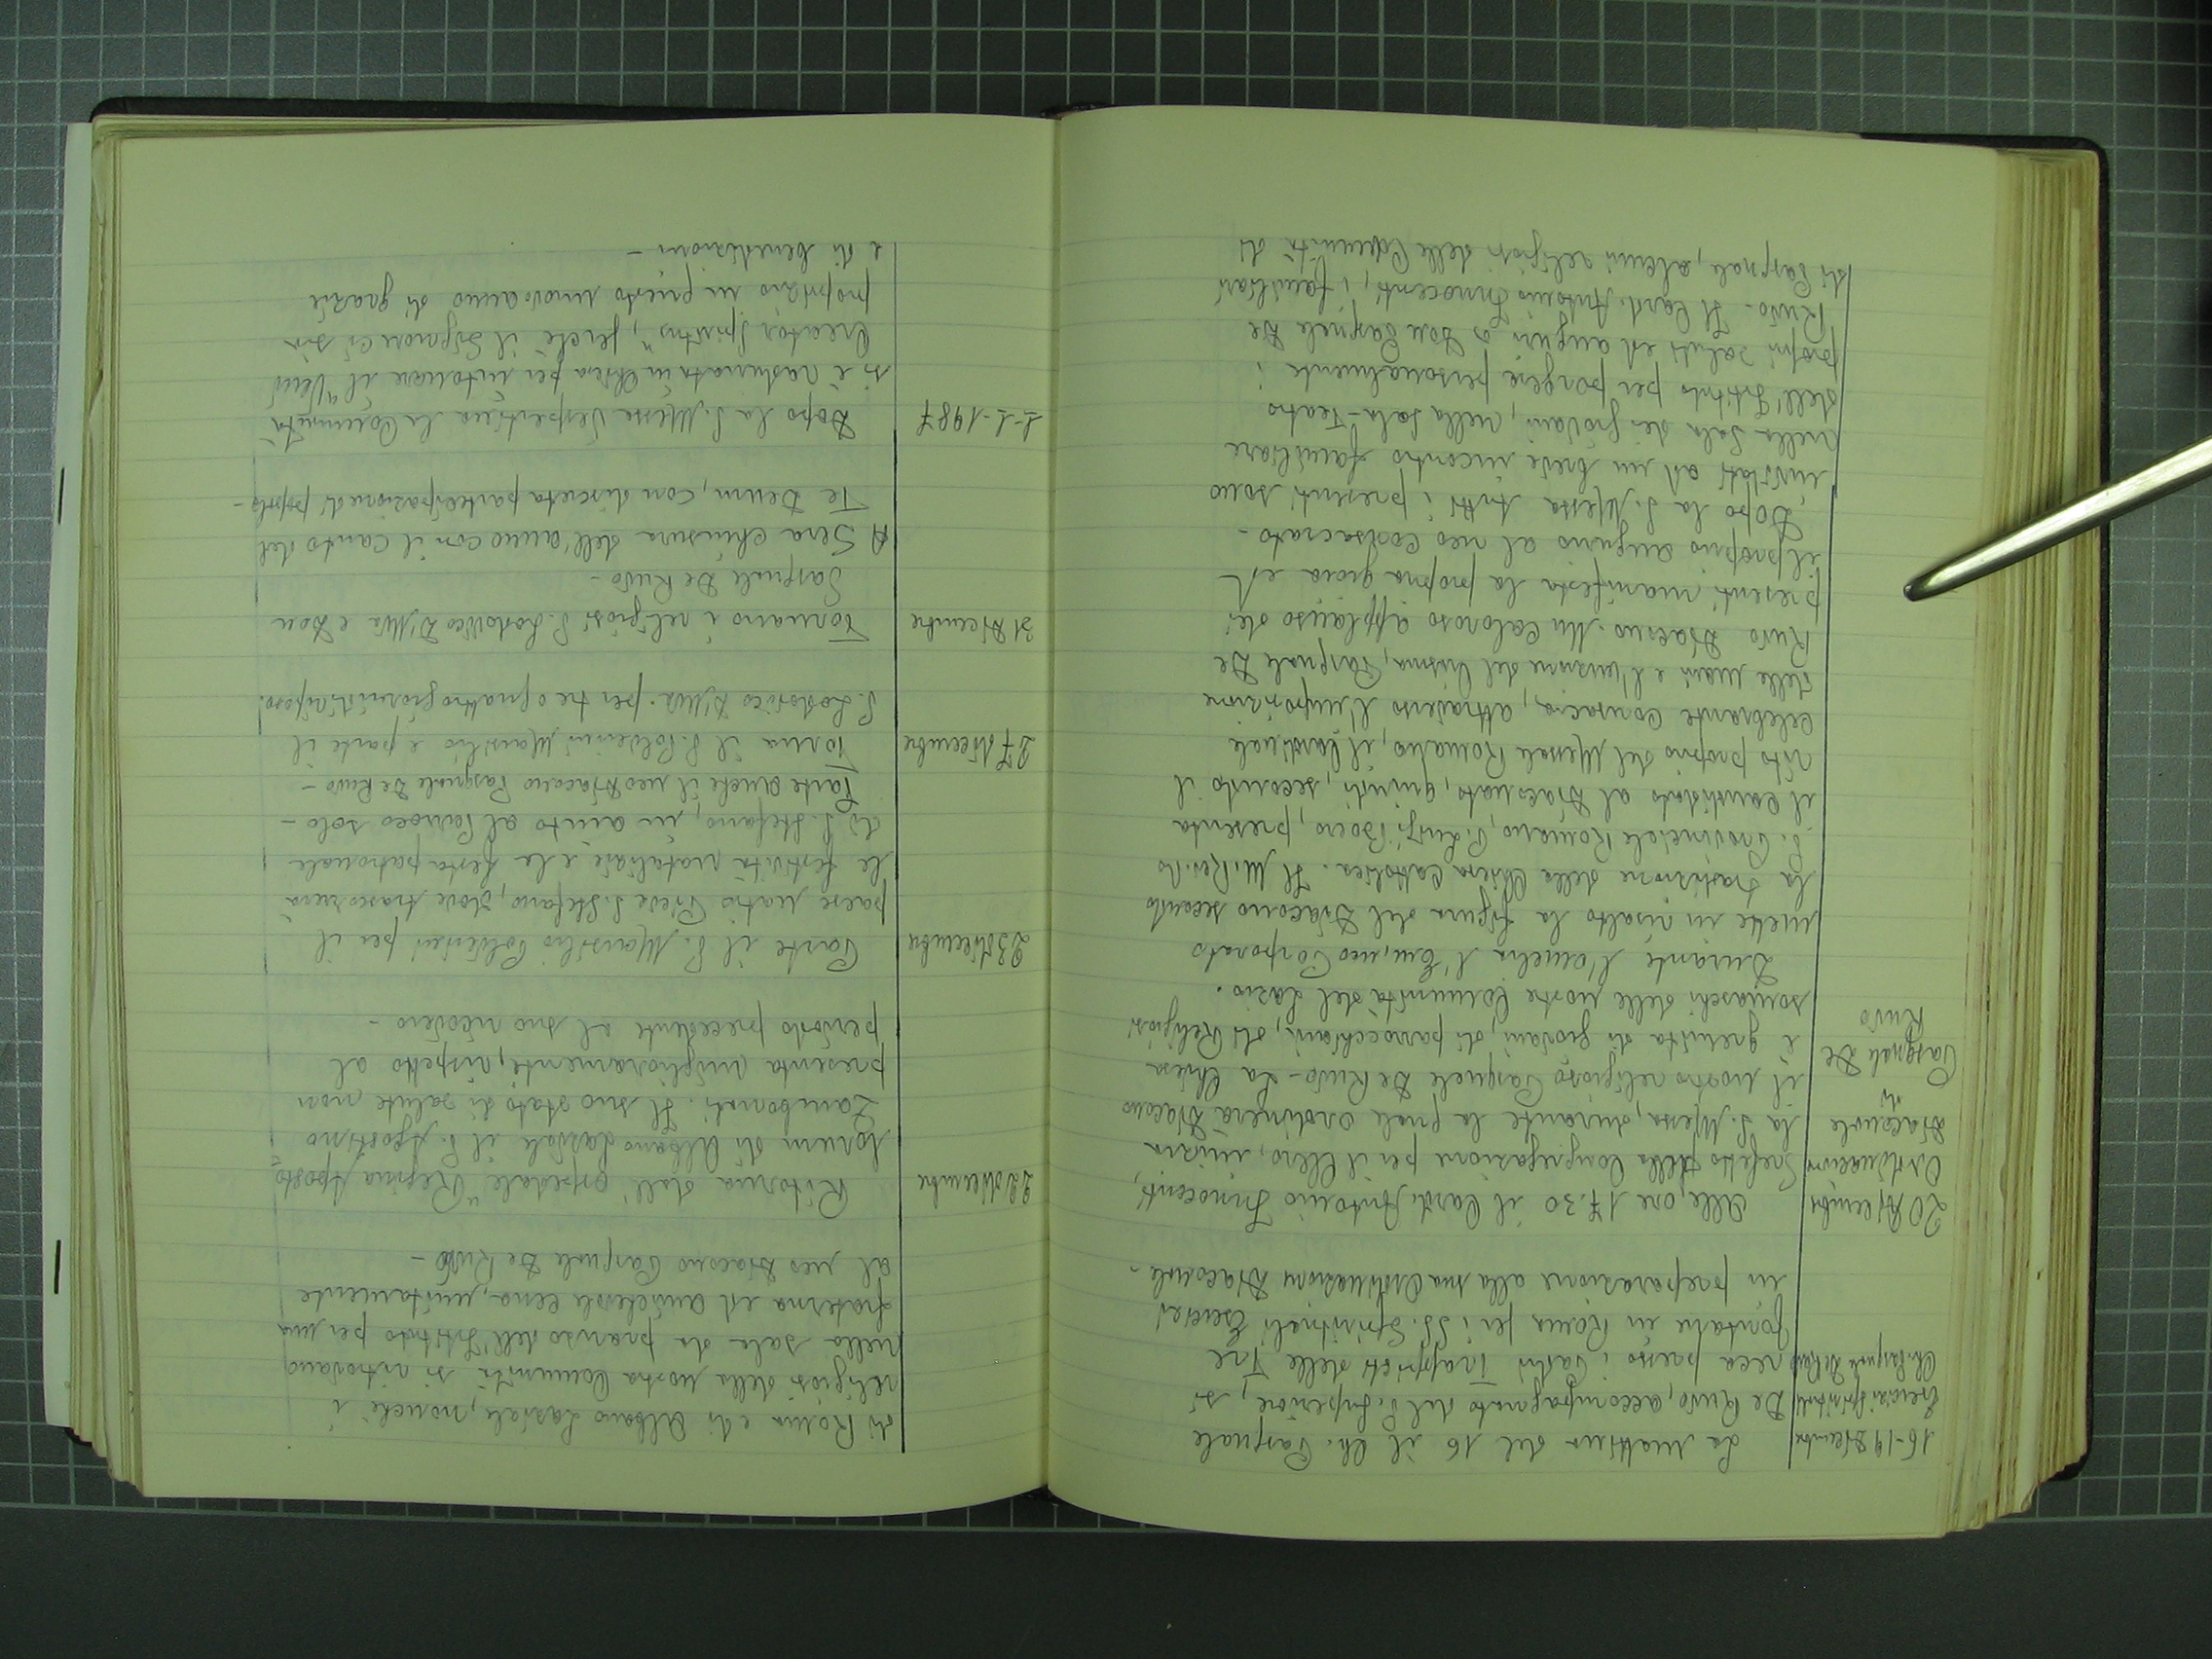 16-19 Dicembre
Esercizi Spirituali
Ch. Pasquale De Ruvo
La mattina del 16 il Ch. Pasquale
De Ruvo, accompagnato dal P. Superiore, si
reca presso i Padri Trappisti delle Tre
Fontane in Roma per i SS. Spirituali Esercizi
in preparazione alla sua Ordinazione Diaconale -
20 Dicembre
Ordinazione
Diaconale
di
Pasquale De
Ruvo
Alle, ore 17.30 il Card. Antonio Innocenti,
Prefetto della Congregazione per il Clero, inizia
la S. Messa, durante la quale ordinerà Diacono
il nostro religioso Pasquale De Ruvo - La Chiesa
è gremita di giovani, di parrocchiani, di Religiosi
somaschi delle nostre Comunità del Lazio.
Durante l'omelia l'Em.mo Porporato
mette in risalto la figura del Diacono secondo
la tradizione della Chiesa Cattolica. Il M. Rev.do
P. Provinciale Romano, P. Luigi Bocco, presenta
il candidato al Diaconato, quindi, secondo il
rito proprio del Messale Romano, il Cardinale
celebrante consacra, attraverso l'imposizione
delle mani e l'unzione del Crisma, Pasquale De
Ruvo Diacono. Un caloroso applauso dei
presenti manifesta la propria gioia ed
il proprio augurio al neo consacrato -
Dopo la S. Messa tutti i presenti sono
invitati ad un breve incontro familiare
nella Sala dei giovani, nella Sala-Teatro
dell'Istituto per porgere personalmente i
propri saluti ed auguri a Don Pasquale De
Ruvo. Il Card. Antonio Innocenti, i familiari
di Pasquale, alcuni religiosi delle Comunità di
di Roma e di Albano Laziale, nonché i
religiosi della nostra Comunità si ritrovano
nella sala da pranzo dell'Istituto per una
fraterna ed amichevole cena, unitamente
al neo Diacono Pasquale De Ruvo -
22 Dicembre
Ritorna dall'ospedale "Regina Aposto
lorum di Albano Laziale il P. Agostino
Zambonati. Il suo stato di salute non
presenta miglioramenti, rispetto al
periodo precedente al suo ricovero -
23 Dicembre
Parte il P. Manilio per il
paese natio Pieve S. Stefano, dove trascorrerà
le festività natalizie e la festa patronale
di S. Stefano, in aiuto al Parroco solo -
Parte anche il neo Diacono Pasquale De Ruvo -
27 Dicembre
Torna il P. Manilio e parte il
P. Lodovico per tre o quattro giorni di riposo.
31 Dicembre
Tornano i religiosi P. Lodovico e Don
Pasquale De Ruvo -
A Sera chiusura dell'anno con il canto del
Te Deum, con discreta partecipazione di popolo -
1-1-1987
Dopo la S. Messa Vespertina la Comunità
si è radunata in Chiesa per intonare il "Veni
Creator Spiritus", perché il Signore ci sia
propizio in questo nuovo anno di grazie
e di benedizioni -